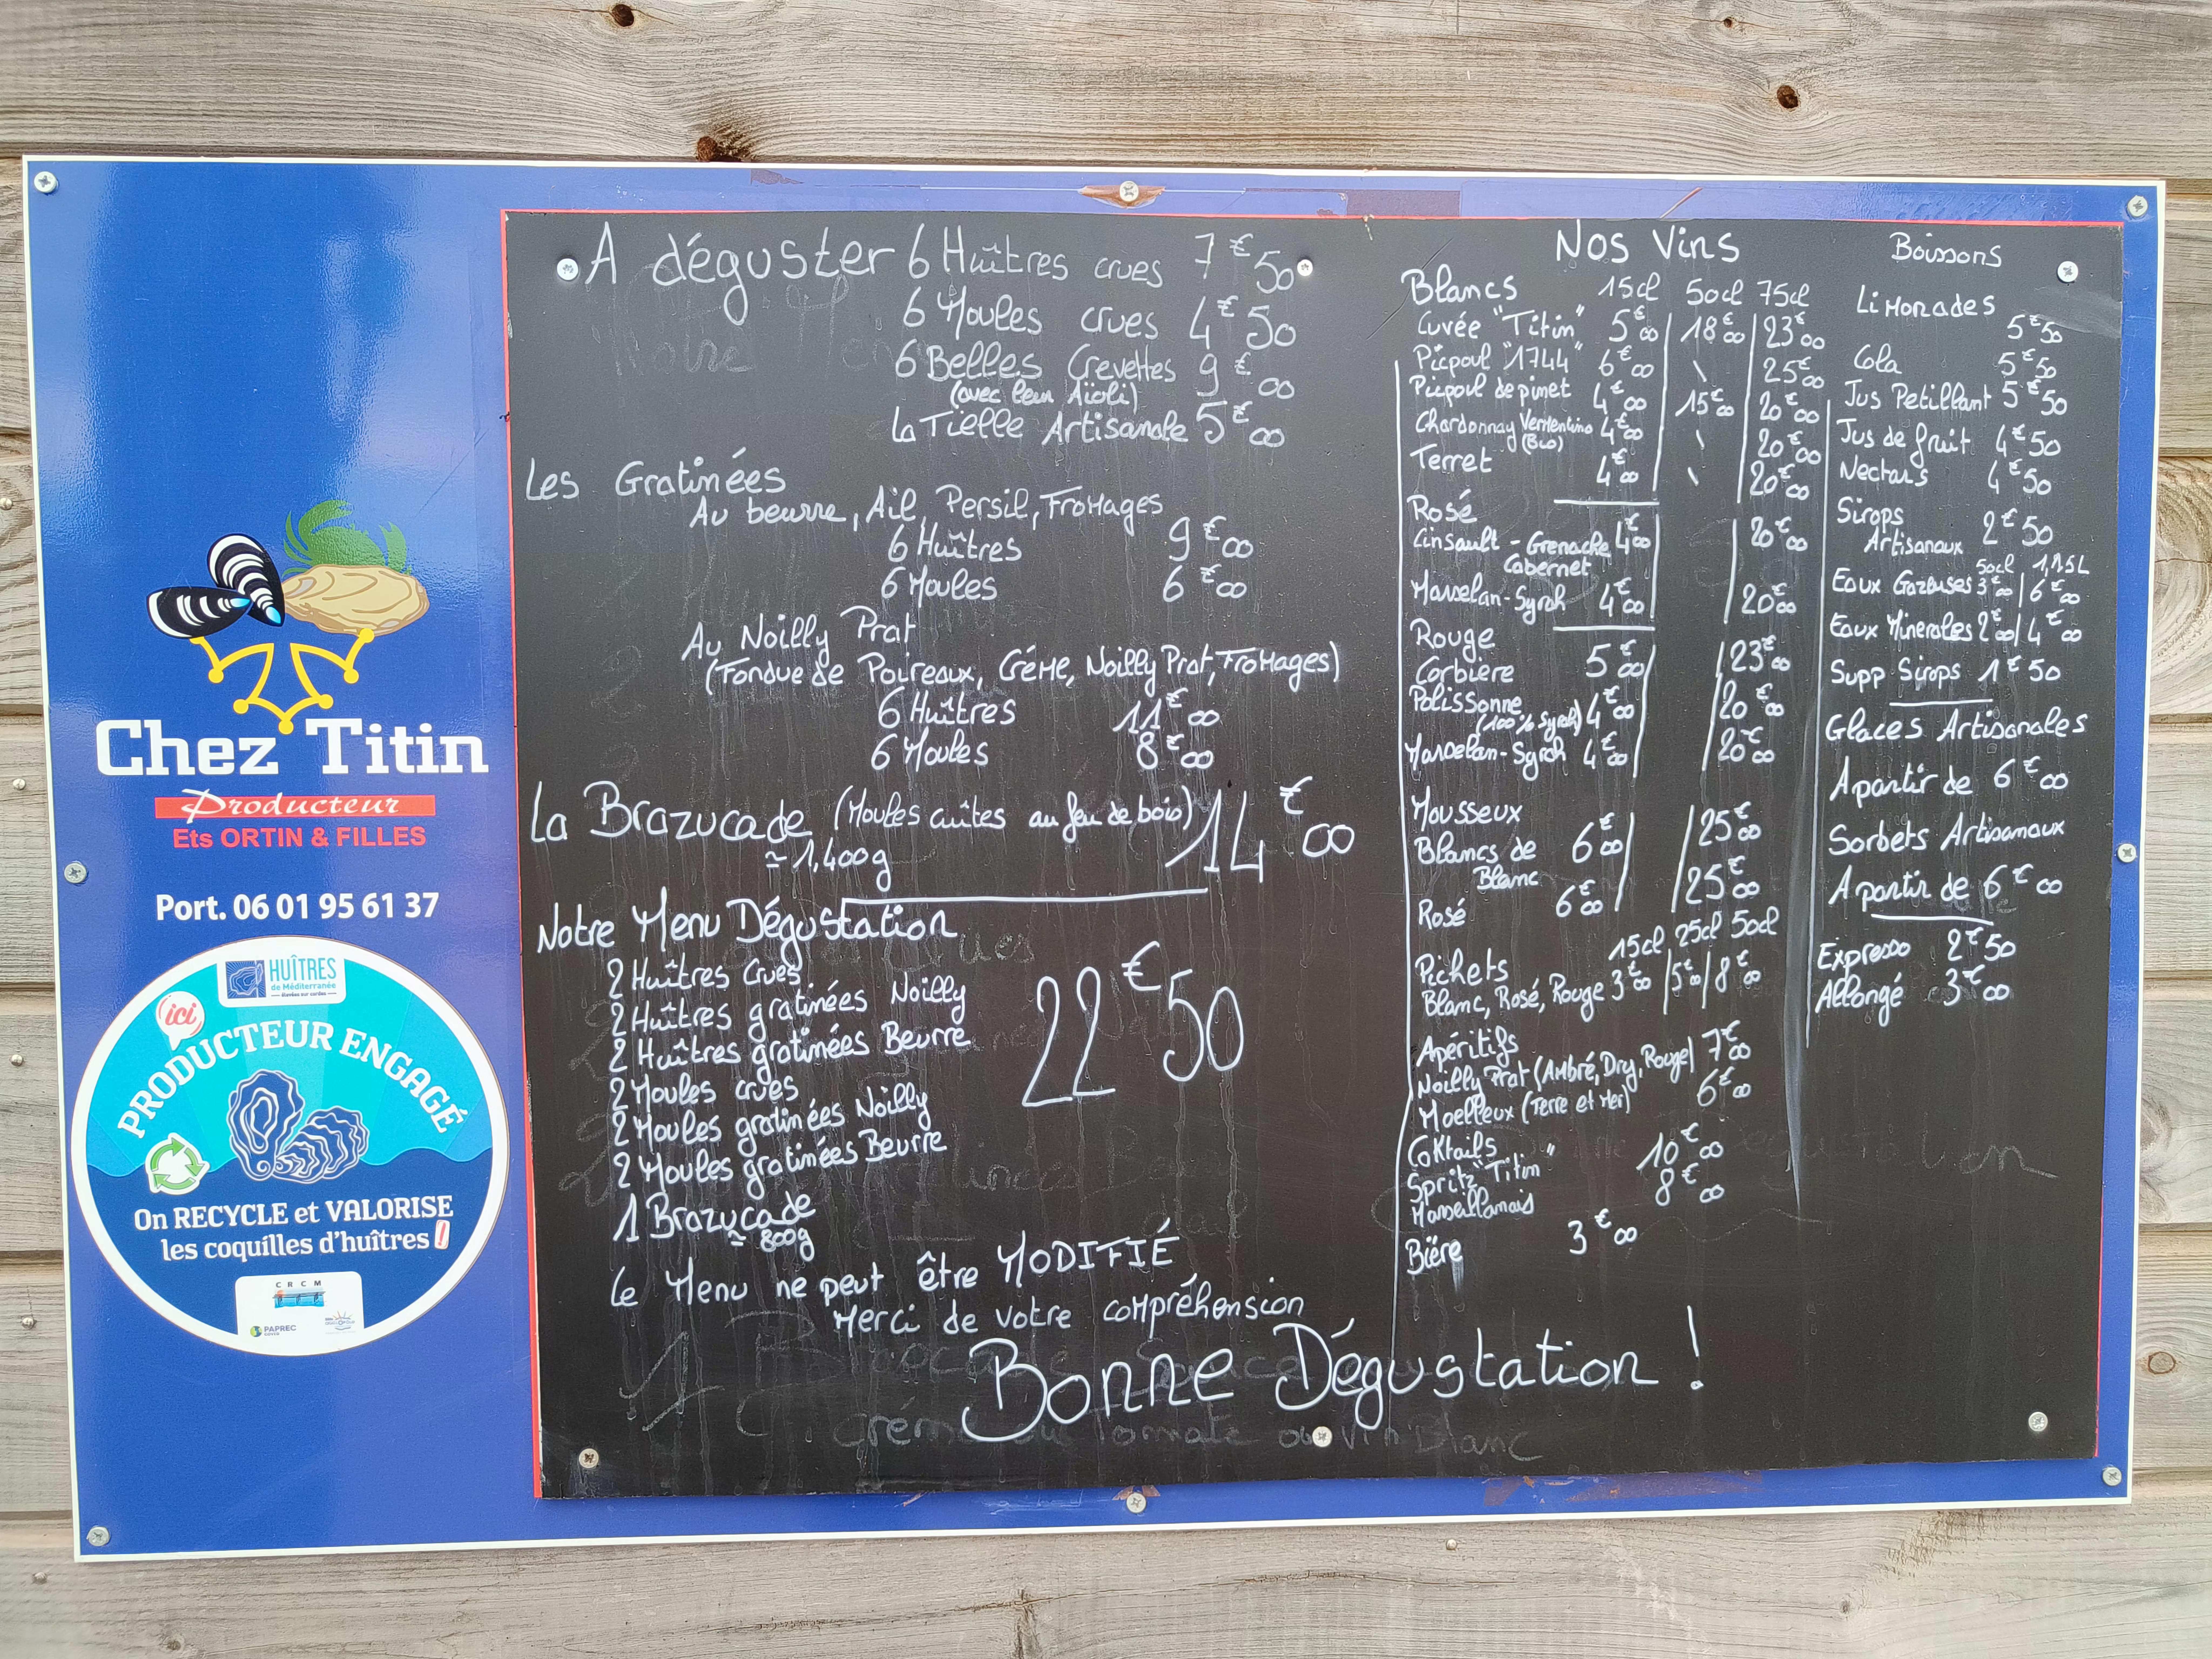 Chez Titin
Producteur
Ets ORTIN & FILLES
Port. 06 01 95 61 37
HUÎTRES
de Méditerranée
ici
PRODUCTEUR ENGAGÉ
On RECYCLE et VALORISE
les coquilles d'huîtres !
CRCM
PAPREC
A déguster 6 Huîtres crues 7€50
6 Moules crues 4€50
6 Belles Crevettes 9€00
(avec leur Aïoli)
La Tielle Artisanale 5€00
Les Gratinées
Au beurre, Ail, Persil, Fromages
6 Huîtres 9€00
6 Moules 6€00
Au Noilly Prat
(Fondue de Poireaux, Crème, Noilly Prat, Fromages)
6 Huîtres 11€00
6 Moules 8€00
La Brazucade (Moules cuîtes au feu de bois) 14€00
≃ 1,400g
Notre Menu Dégustation
2 Huîtres Crues
2 Huîtres gratinées Noilly
2 Huîtres gratinées Beurre
22€50
2 Moules crues
2 Moules gratinées Noilly
2 Moules gratinées Beurre
1 Brazucade
≃ 800g
Le Menu ne peut être MODIFIÉ
Merci de votre compréhension
Bonne Dégustation !
Nos Vins
Blancs 15cl 50cl 75cl
Cuvée "Titin" 5€00 18€00 23€00
Picpoul "1744" 6€00 \ 25€00
Picpoul de pinet 4€00 15€00 20€00
Chardonnay Vermentino 4€00 \ 20€00
(Bio)
Terret 4€00 \ 20€00
Rosé
Cinsault - Grenache 4€00 20€00
Cabernet
Marselan-Syrah 4€00 20€00
Rouge
Corbière 5€00 23€00
Polissonne 4€00 20€00
(100% Syrah)
Marselan-Syrah 4€00 20€00
Mousseux
Blancs de 6€00 25€00
Blanc
Rosé 6€00 25€00
15cl 25cl 50cl
Pichets
Blanc, Rosé, Rouge 3€00 5€00 8€00
Apéritifs
Noilly Prat (Ambré, Dry, Rouge) 7€00
Moelleux (Terre et Mer) 6€00
Coktails
Spritz "Titin" 10€00
Marseillanais 8€00
Bière 3€00
Boissons
Limonades
5€50
Cola 5€50
Jus Petillant 5€50
Jus de fruit 4€50
Nectars 4€50
Sirops
Artisanaux 2€50
50cl 1,15L
Eaux Gazeuses 3€00 / 6€00
Eaux Minerales 2€00 / 4€00
Supp Sirops 1€50
Glaces Artisanales
A partir de 6€00
Sorbets Artisanaux
A partir de 6€00
Expresso 2€50
Allongé 3€00